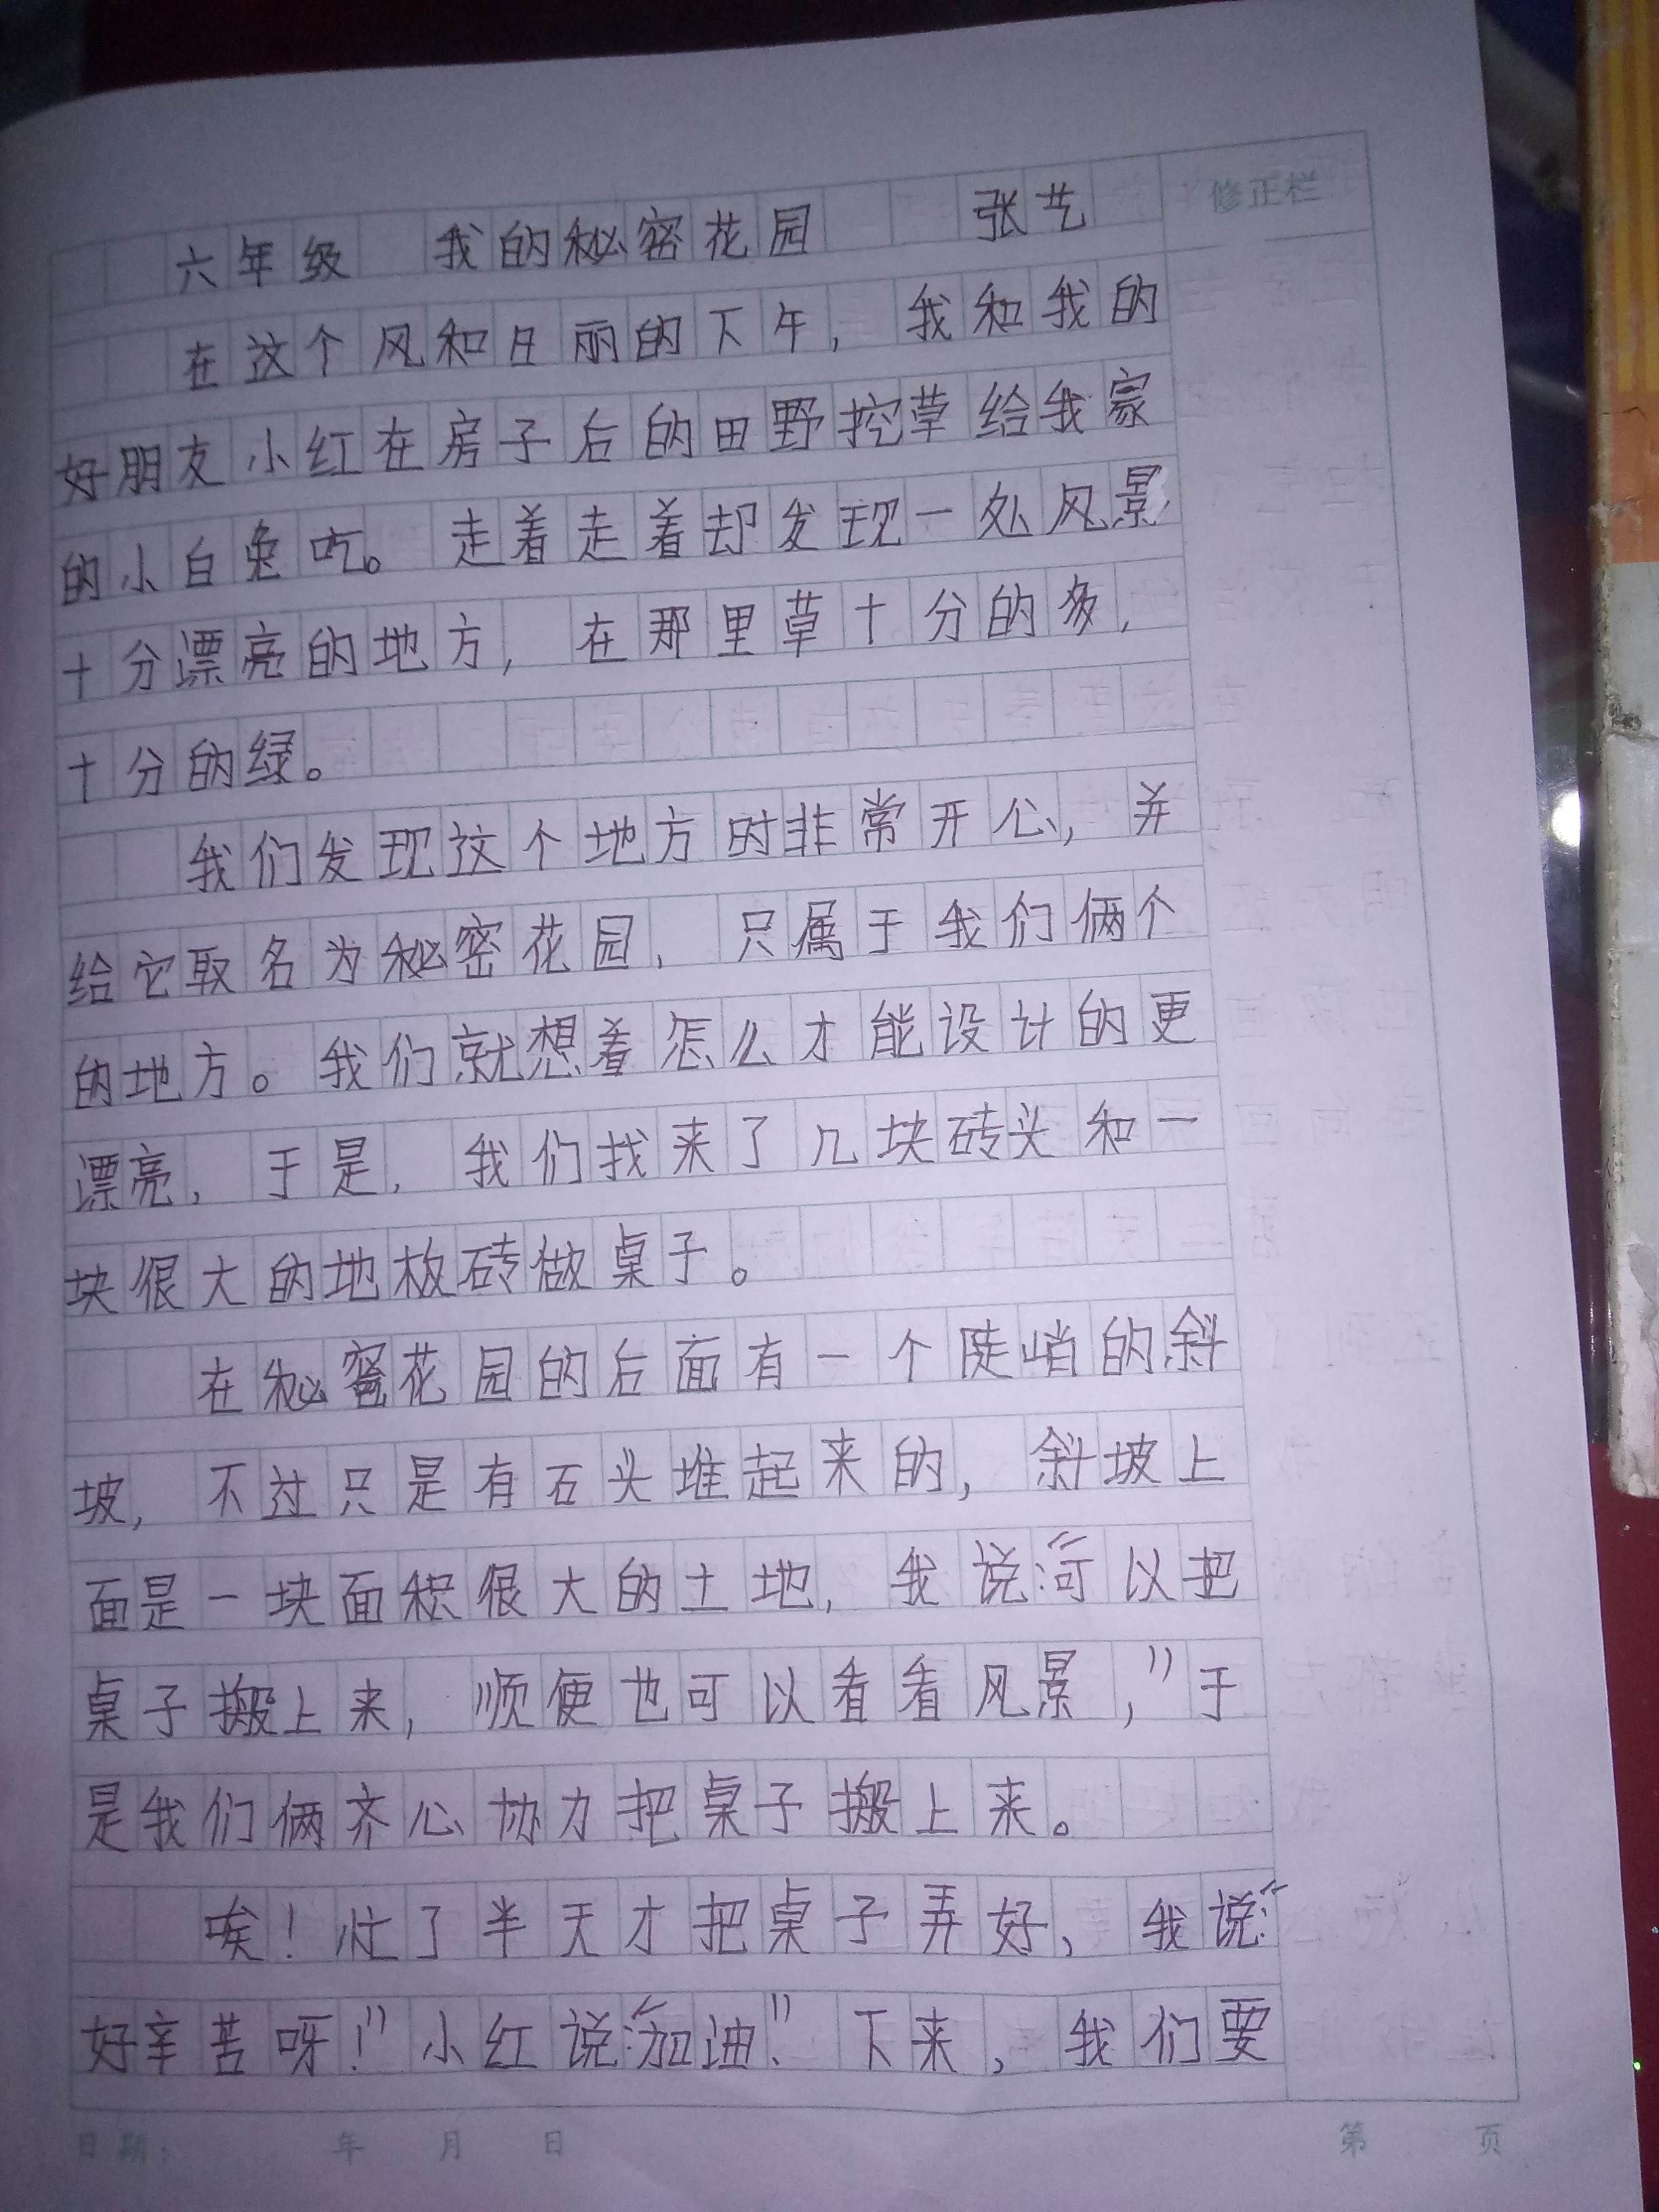 六年级 我的秘密花园 张艺
修正栏
在这个风和日丽的下午，我和我的
好朋友小红在房子后的田野挖草给我家
的小白兔吃。走着走着却发现一处风景
十分漂亮的地方，在那里草十分的多，
十分的绿。
我们发现这个地方时非常开心，并
给它取名为秘密花园，只属于我们俩个
的地方。我们就想着怎么才能设计的更
漂亮，于是，我们找来了几块砖头和一
块很大的地板砖做桌子。
在秘密花园的后面有一个陡峭的斜
坡，不过只是有石头堆起来的，斜坡上
面是一块面积很大的土地，我说：“可以把
桌子搬上来，顺便也可以看看风景，”于
是我们俩齐心协力把桌子搬上来。
唉！忙了半天才把桌子弄好，我说：“
好辛苦呀！”小红说：“加油！”下来，我们要
日期： 年 月 日 第 页